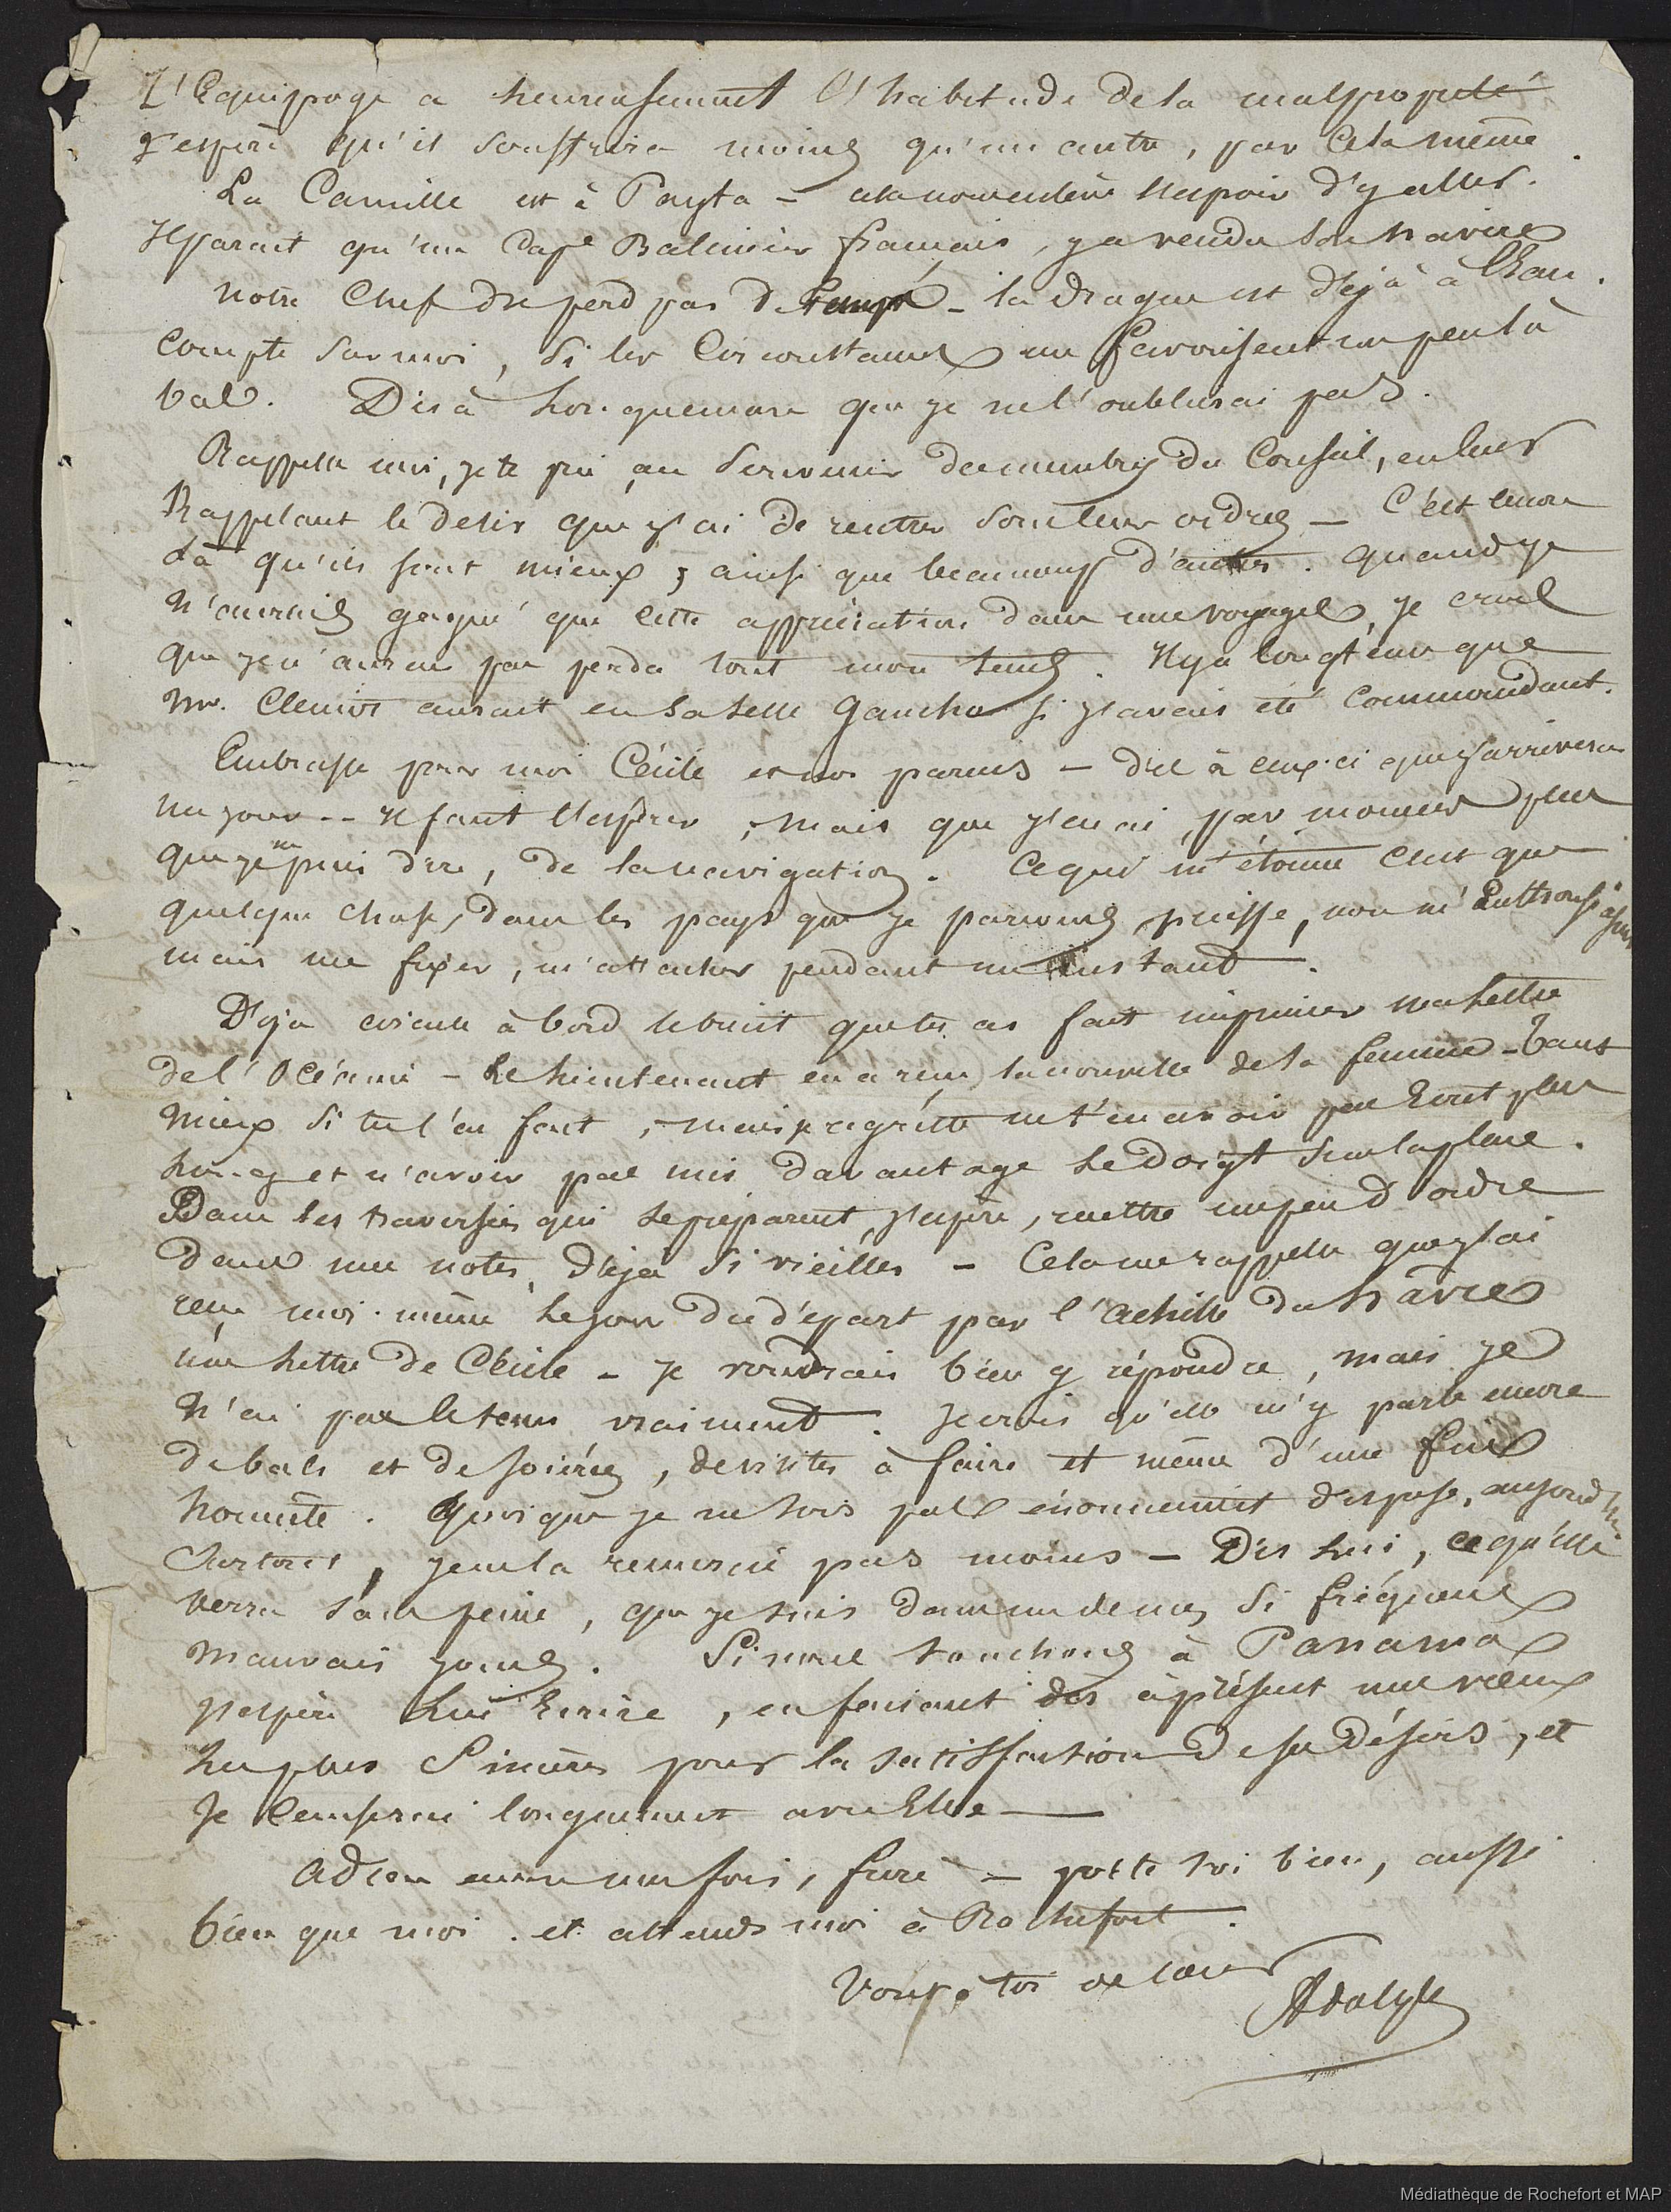 L'équipage a heureusement l'habitude de la malpropreté
J'espère qu'il souffrira moins qu'un autre, par cela même.
La Camille est à Payta – cela nous enlève l'espoir d'y aller.
Il parait qu'un Cape Baleinier français, y a vendu son navire
Notre Chef ne perd pas de temps – la drague est déjà à l'eau.
Compte sur moi, si les circonstances me favorisent un peu là
bas. Dis à que je ne l'oublierai pas.
Rappelle moi, je te prie, au souvenir des membres du Conseil, en leur
Rappelant le desir que j'ai de rentrer sous leurs ordres – C'est encore
là qu'ils sont mieux, ainsi que beaucoup d'autres. quand je
n'aurais gagné que cette appréciation dans mes voyages, je crois
que je n'aurai pas perdu tout mon tems. Il y a longtems que
Mr. aurait eu sa selle Gaucho si j'avais été Commandant.
Embrasse pour moi Cécile et nos parens – dis à ceux-ci que j'arriverai
un jour -- Il faut l'espérer, mais que j'en ai, par momens plus
que je ne puis dire, de la navigation. Ce qui m'étonne c'est que
quelque chose, dans les pays que je parcours puisse, non m'enthousiasmer
mais me fixer, m'attacher pendant un instant.
Déja circule à bord le bruit que tu as fait imprimer ma lettre
de l'Océanie – Le lieutenant en a reçu la nouvelle de sa femme – tant
mieux si tu l'as fait, mais je regrette ne t'en avoir pas écrit plus
long et n'avoir pas mis davantage le doigt sur la plaie.
Dans les traversées qui se préparent, j'espère, mettre un peu d'ordre
dans mes notes, déja si vieilles – Cela me rappelle que j'ai
reçu moi-même le jour du départ par l'Achille du hâvre
une lettre de Cécile – Je voudrais bien y répondre, mais je
n'ai pas le tems vraiment. Je crois qu'elle m'y parle encore
de bals et de soirées, de visites à faire et même d'une
honnête. Quoique je ne sois pas énormément disposé, aujourd'hui
surtout, je ne la remercie pas moins – Dis lui, ce qu'elle
verra sans peine, que je suis dans un de mes si fréquens
mauvais jours. Si nous touchons à Panama
j'espère lui écrire, en faisant dès à présent mes vœux
les plus sincères pour la satisfaction de ses désirs, et
je causerai longuement avec Elle –
Adieu encore une fois, frère – porte toi bien, aussi
bien que moi. et attends moi à Rochefort.
Tout à toi de cœur
Adolphe
Médiathèque de Rochefort et MAP